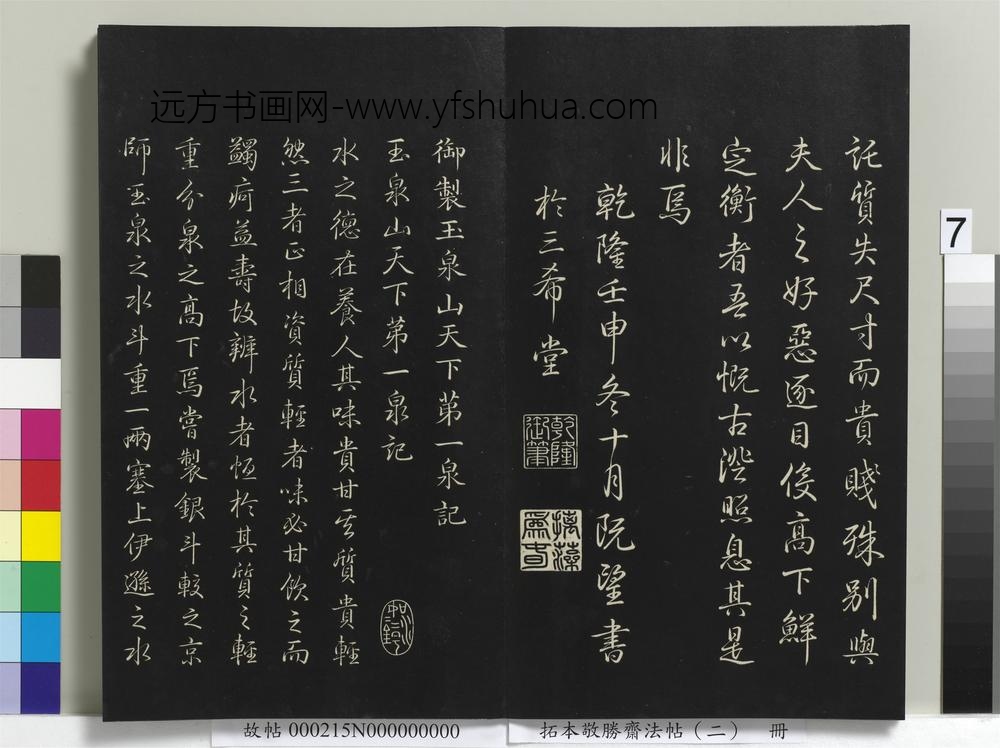 远方书画网-www.yfshuhua.com
託質失尺寸而貴賤殊別與
夫人之好惡逐目佞高下鮮
定衡者吾以慨古澄照息其是
非焉
乾隆壬申冬十月既望書
於三希堂
乾隆御筆
摛藻為春
御製玉泉山天下第一泉記
玉泉山天下第一泉記
水之德在養人其味貴甘其質貴輕
然三者正相資質輕者味必甘飲之而
蠲疴益壽故辨水者恆於其質之輕
重分泉之高下焉嘗製銀斗較之京
師玉泉之水斗重一兩塞上伊遜之水
7
故帖 000215N000000000
拓本敬勝齋法帖（二） 冊